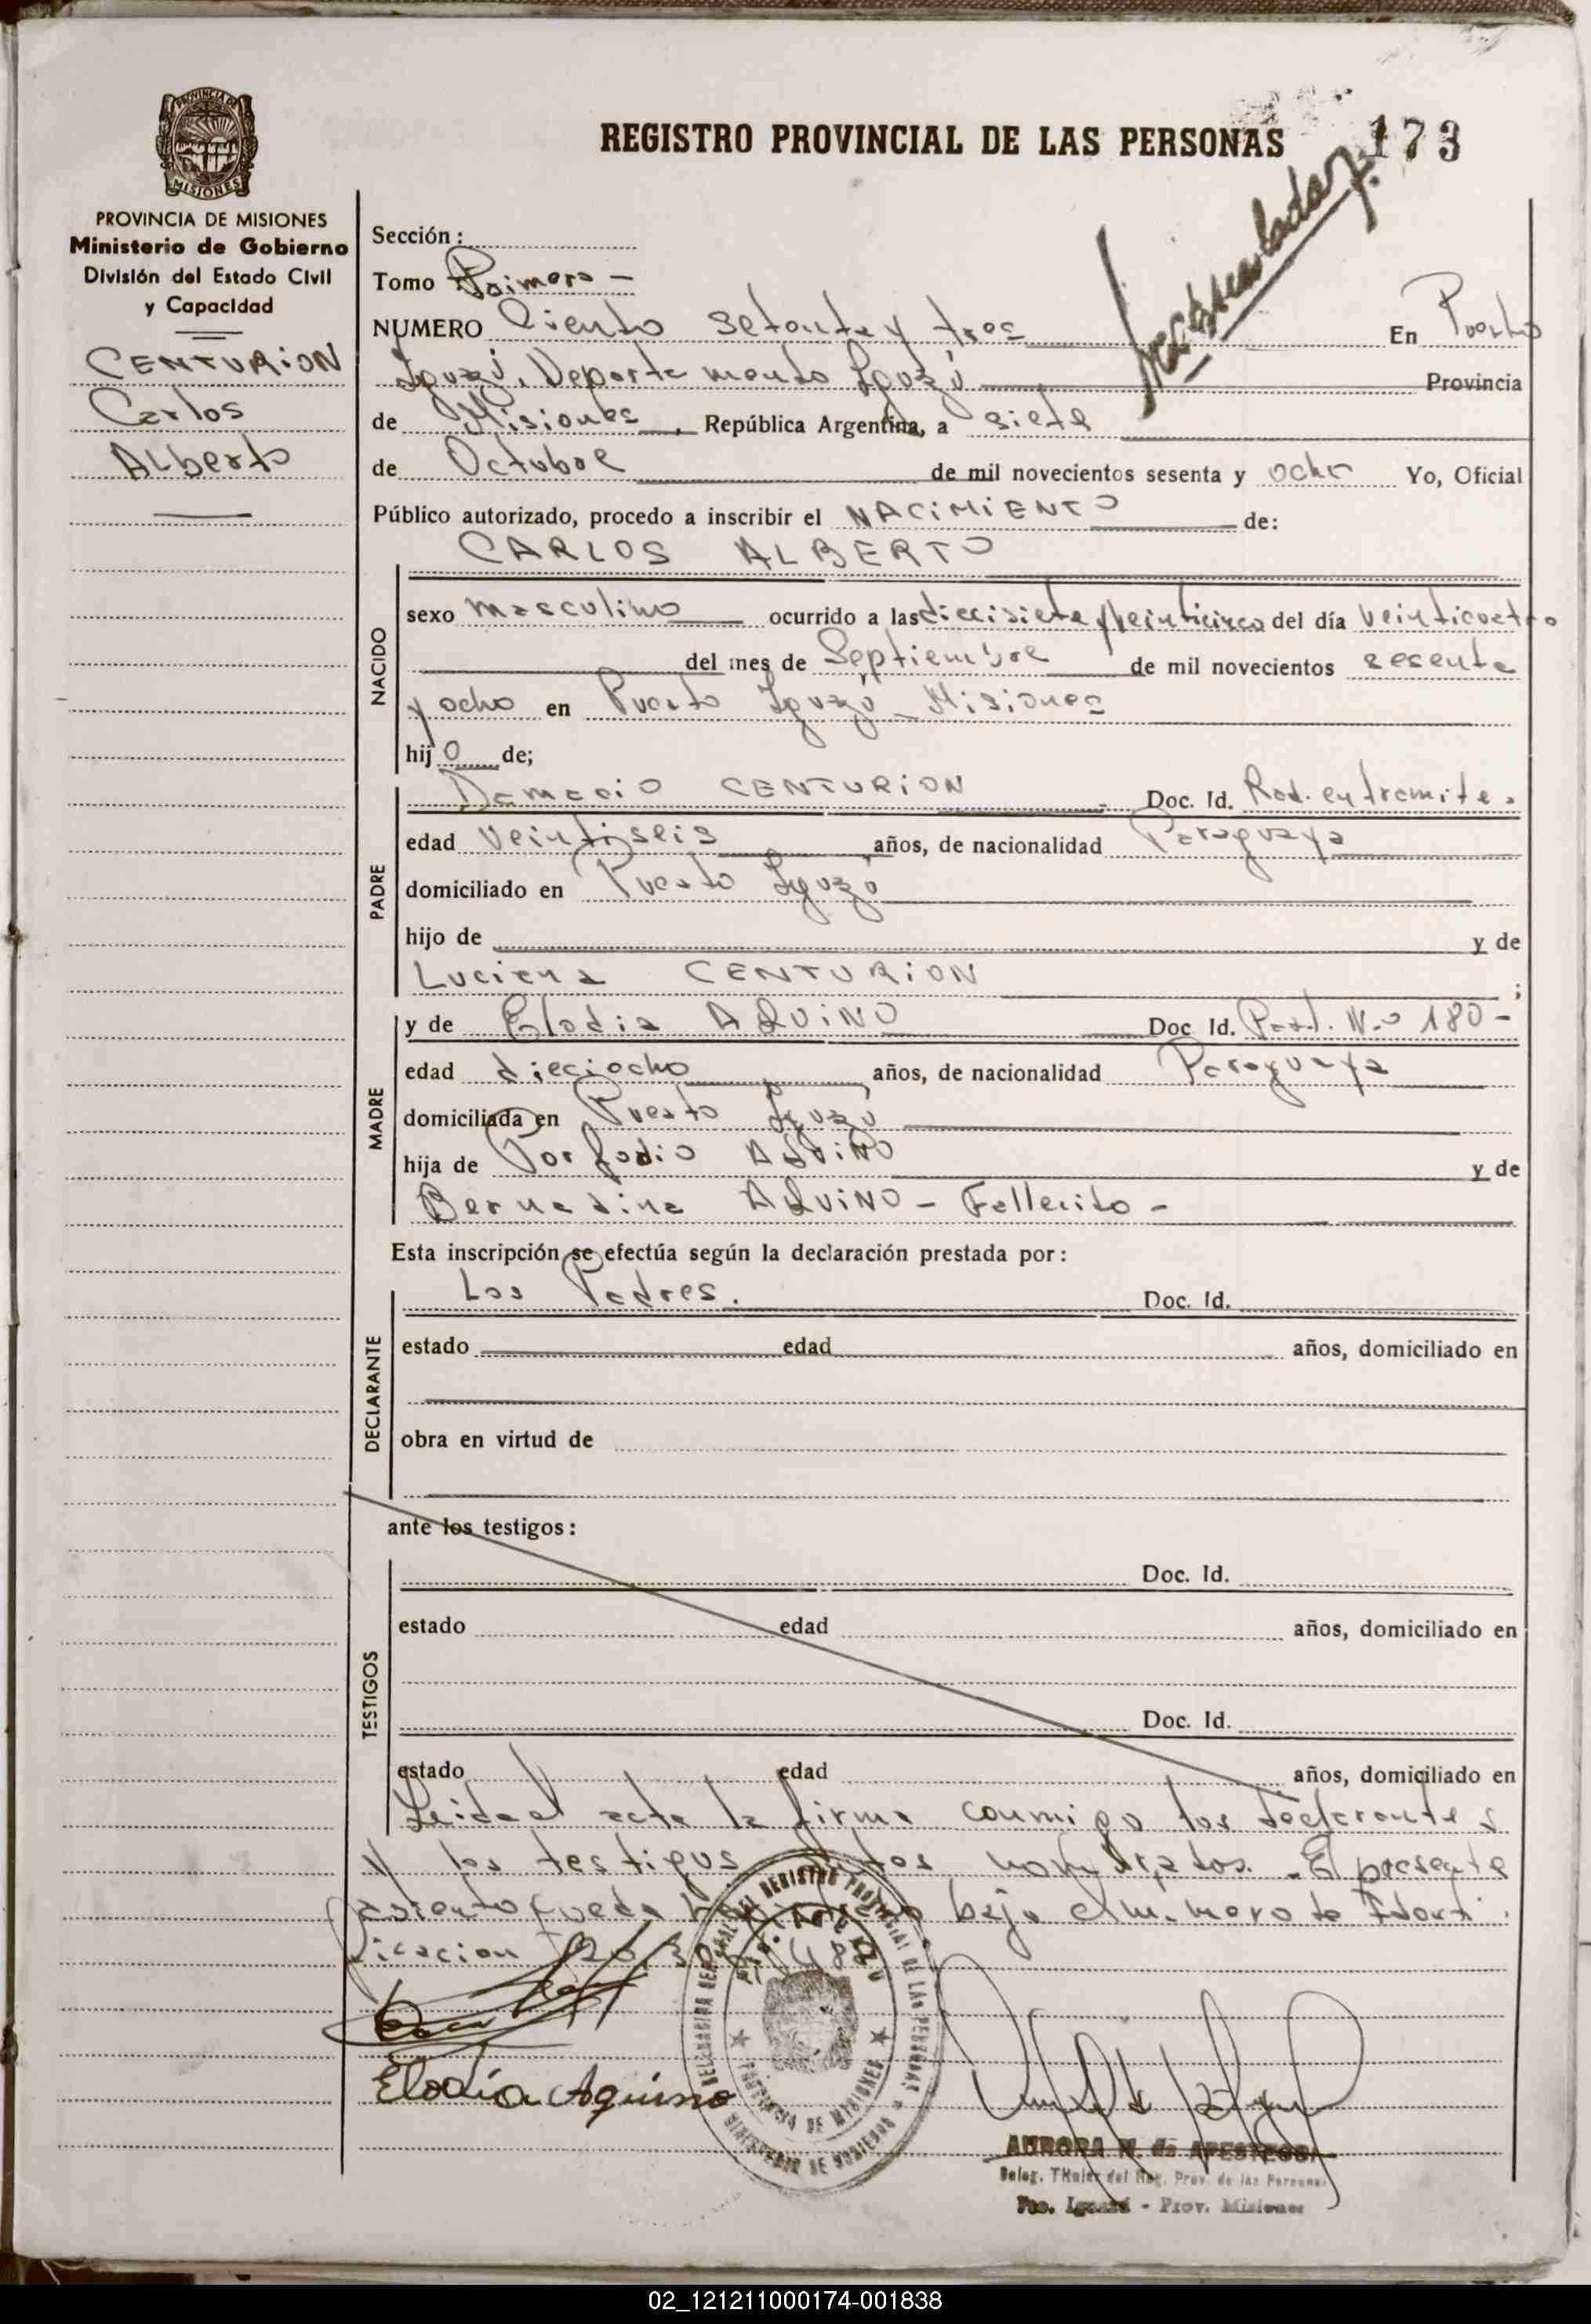 REGISTRO PROVINCIAL DE LAS PERSONAS
173
PROVINCIA DE
MISIONES
PROVINCIA DE MISIONES
Ministerio de Gobierno
División del Estado Civil
y Capacidad
CENTURION
Carlos
Alberto
Sección:
Tomo Primero -
NUMERO Ciento setenta y tres En Puerto
Iguazú, Departamento Iguazú Provincia
de Misiones, República Argentina, a siete
de Octubre de mil novecientos sesenta y ocho Yo, Oficial
Público autorizado, procedo a inscribir el NACIMIENTO de:
CARLOS ALBERTO
NACIDO
sexo masculino ocurrido a las diecisiete y veinticinco del día veinticuatro
del mes de Septiembre de mil novecientos sesenta
y ocho en Puerto Iguazú - Misiones
hijo de;
PADRE
Damacio CENTURION Doc. Id. Rad. en tramite.
edad veintiseis años, de nacionalidad Paraguaya
domiciliado en Puerto Iguazú
hijo de y de
Luciana CENTURION ;
MADRE
y de Elodia AQUINO Doc Id. N.o 180-
edad dieciocho años, de nacionalidad Paraguaya
domiciliada en Puerto Iguazú
hija de Porfodio AQUINO y de
Bernadina AQUINO - Fallecido -
Esta inscripción se efectúa según la declaración prestada por:
DECLARANTE
Los Padres. Doc. Id.
estado edad años, domiciliado en
obra en virtud de
ante los testigos:
TESTIGOS
Doc. Id.
estado edad años, domiciliado en
Doc. Id.
estado edad años, domiciliado en
Leida el acta la firma conmigo los declarantes
y los testigos antes nombrados. El presente
asiento queda bajo el numero de Identi
ficacion
Elodia Aquino
DELEGACION REGIONAL DEL REGISTRO PROVINCIAL DE LAS PERSONAS
PROVINCIA DE MISIONES
MINISTERIO DE GOBIERNO
AURORA N. de APESTEGUI
Deleg. Titular del Reg. Prov. de las Personas
Pto. Iguazú - Prov. Misiones
02_121211000174-001838